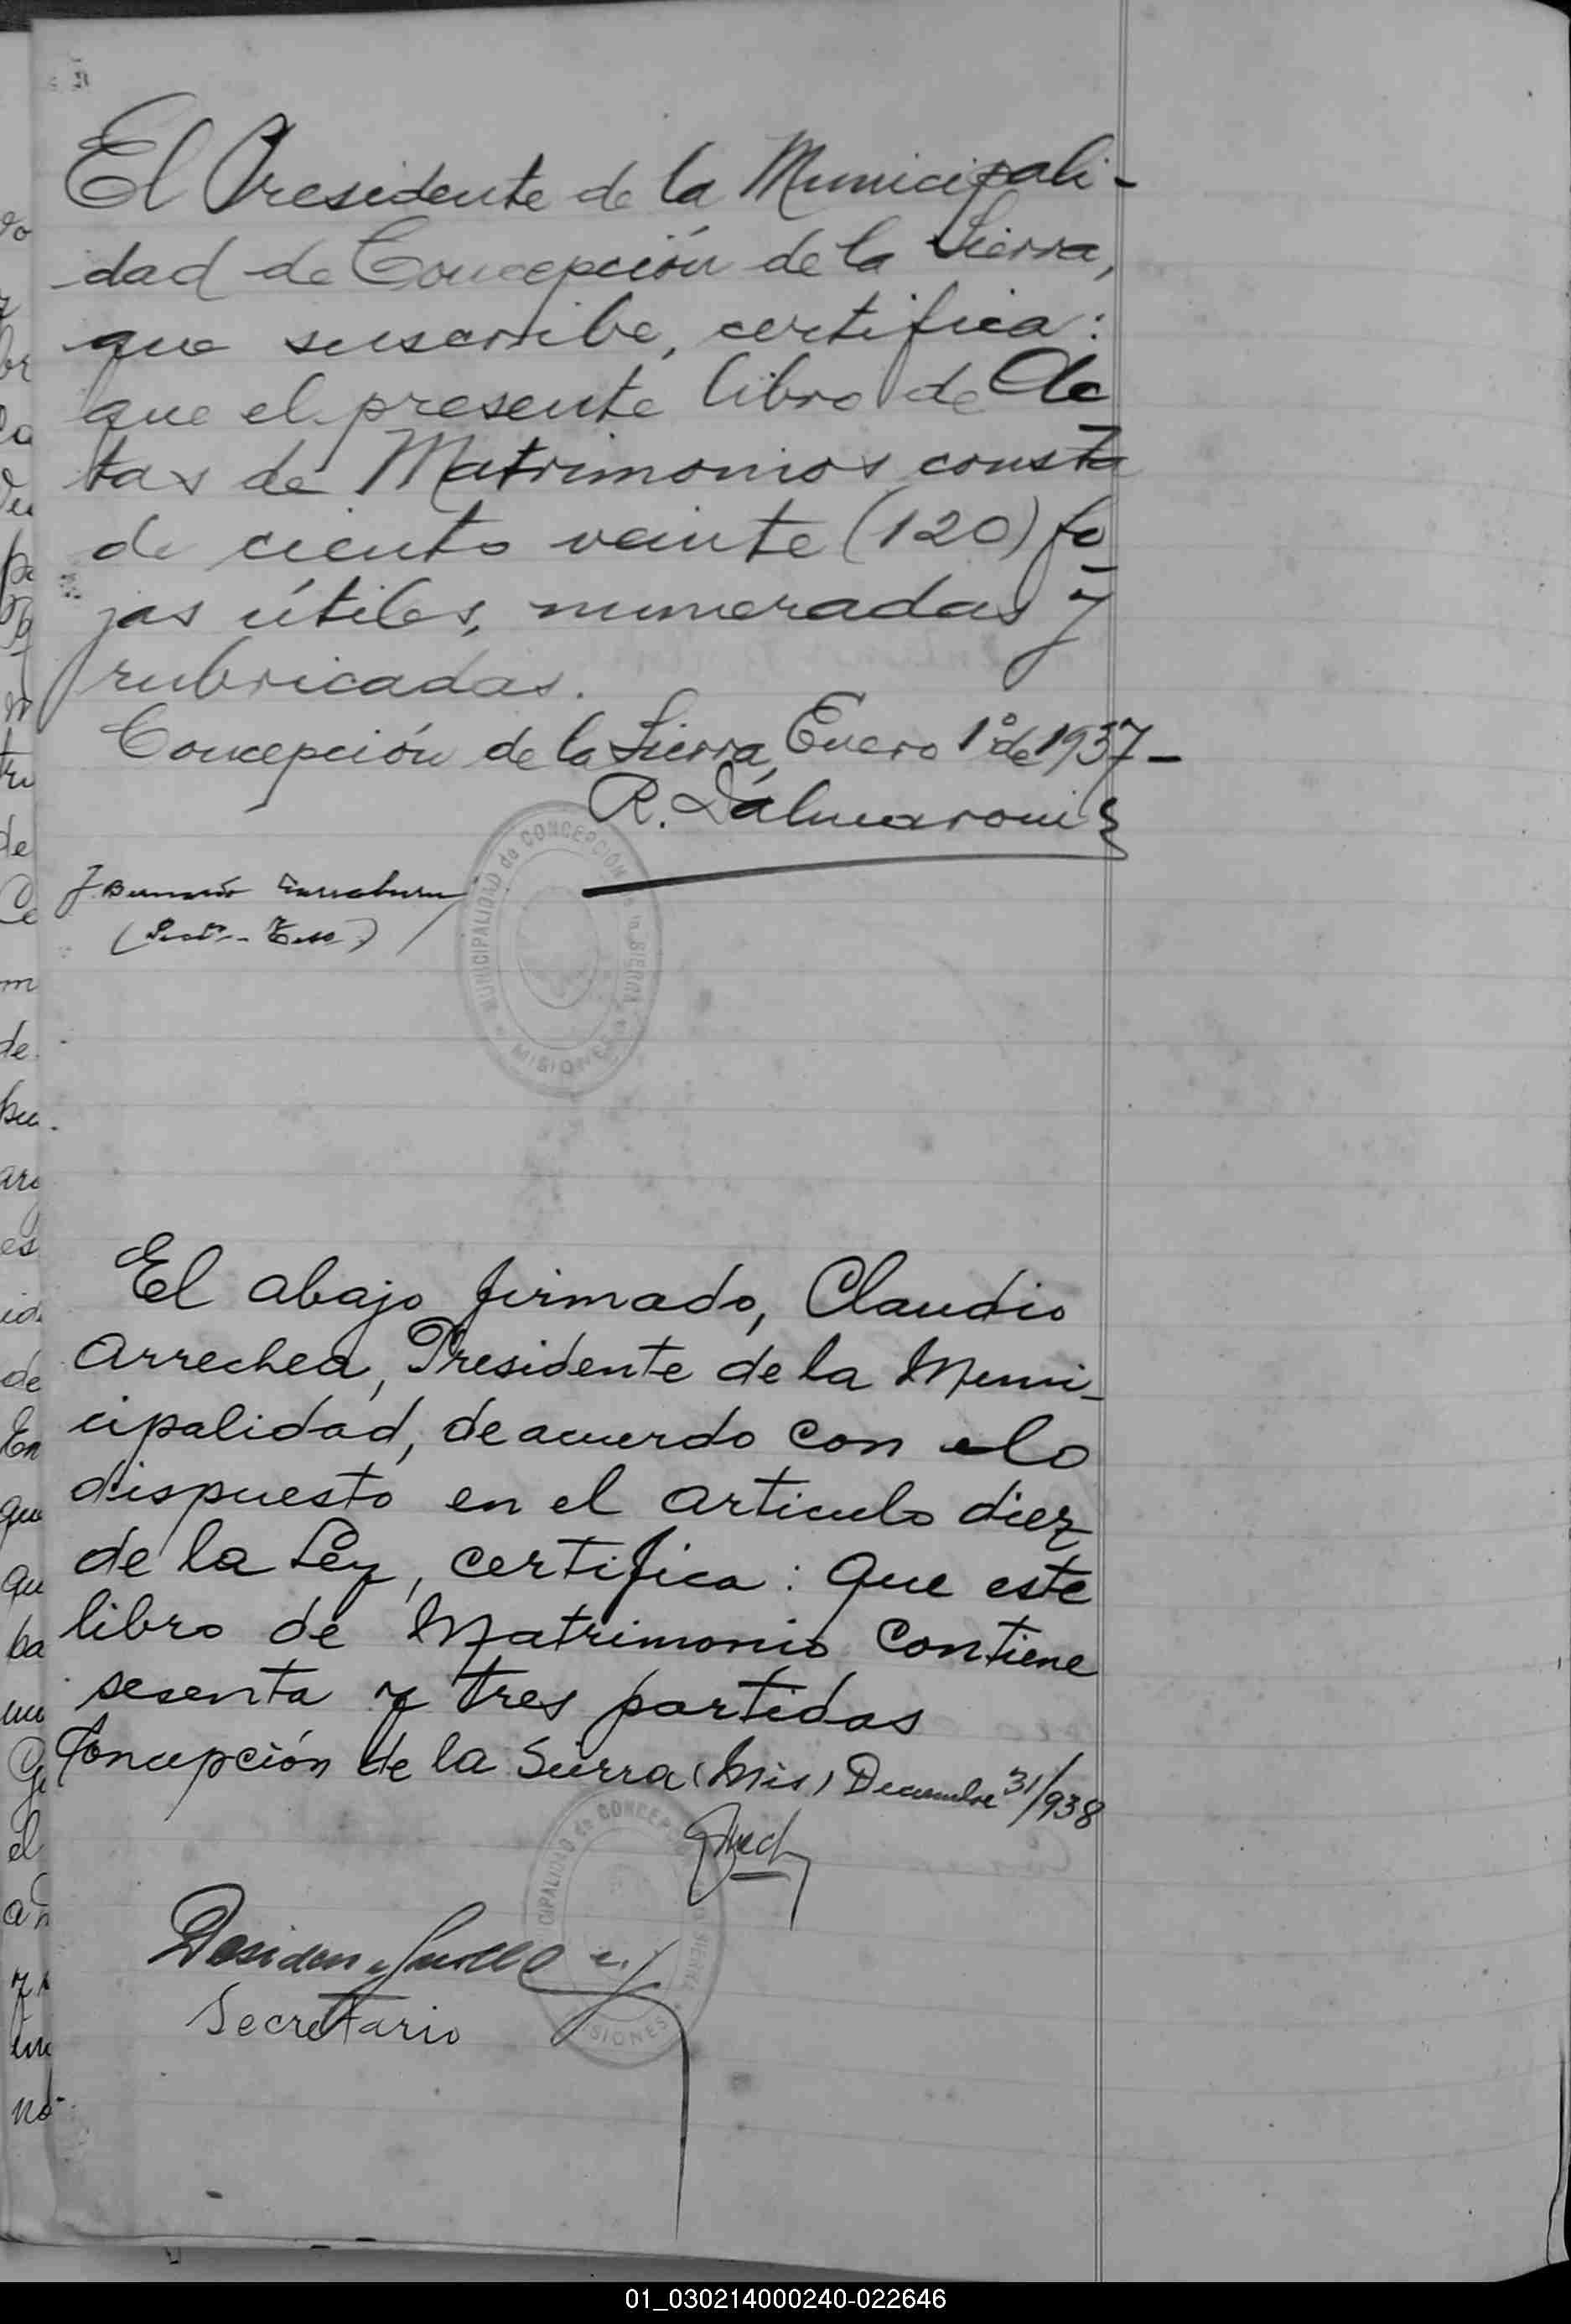 El Presidente de la Municipali-
dad de Concepción de la Sierra,
que suscribe, certifica:
que el presente libro de Ac
tas de Matrimonios consta
de ciento veinte (120) fo
jas útiles, numeradas y
rubricadas.
Concepción de la Sierra, Enero 1º de 1937-
R. Dálmaroni
MUNICIPALIDAD de CONCEPCIÓN de la SIERRA
MISIONES
El abajo firmado, Claudio
Arrechea, Presidente de la Muni-
cipalidad, de acuerdo con lo
dispuesto en el articulo diez
de la Ley, certifica: Que este
libro de Matrimonio contiene
sesenta y tres partidas
Concepción de la Sierra (Mis) Diciembre 31/938
Secretario
01_030214000240-022646